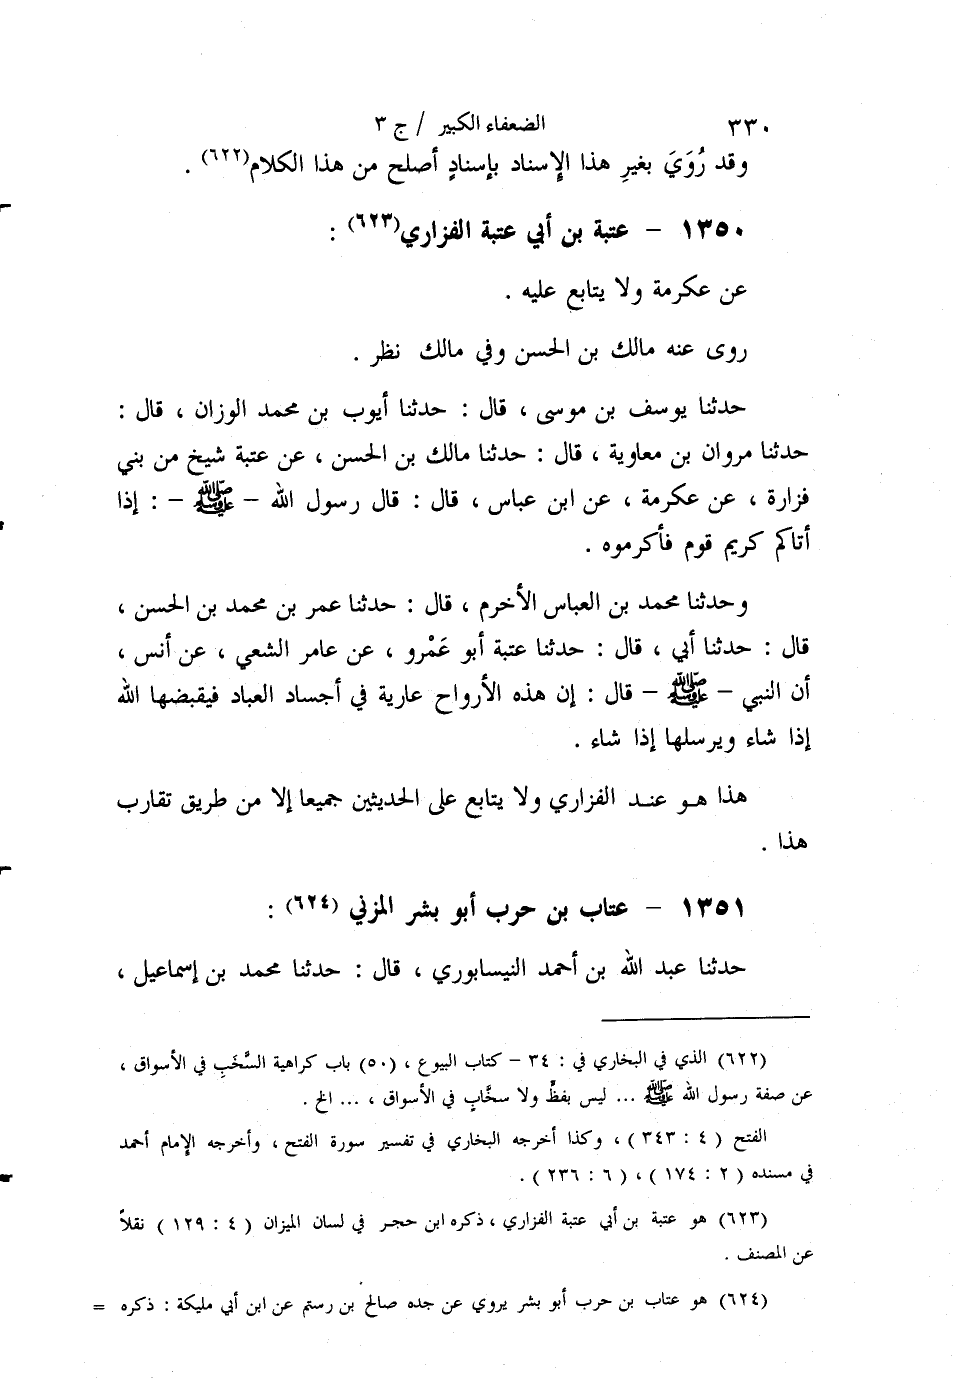 ٣٣٠ الضعفاء الكبير / ج ٣
وقد رُوَيَ بغيرِ هذا الإسناد بإسنادٍ أصلح من هذا الكلام(٦٢٢) .
١٣٥٠ – عتبة بن أبي عتبة الفزاري(٦٢٣) :
عن عكرمة ولا يتابع عليه .
روى عنه مالك بن الحسن وفي مالك نظر .
حدثنا يوسف بن موسى ، قال : حدثنا أيوب بن محمد الوزان ، قال :
حدثنا مروان بن معاوية ، قال : حدثنا مالك بن الحسن ، عن عتبة شيخ من بني
فزارة ، عن عكرمة ، عن ابن عباس ، قال : قال رسول الله – ﷺ – : إذا
أتاكم كريم قوم فأكرموه .
وحدثنا محمد بن العباس الأخرم ، قال : حدثنا عمر بن محمد بن الحسن ،
قال : حدثنا أبي ، قال : حدثنا عتبة أبو عَمْرو ، عن عامر الشعي ، عن أنس ،
أن النبي – ﷺ – قال : إن هذه الأرواح عارية في أجساد العباد فيقبضها الله
إذا شاء ويرسلها إذا شاء .
هذا هو عند الفزاري ولا يتابع على الحديثين جميعا إلا من طريق تقارب
هذا .
١٣٥١ – عتاب بن حرب أبو بشر المزني (٦٢٤) :
حدثنا عبد الله بن أحمد النيسابوري ، قال : حدثنا محمد بن إسماعيل ،
(٦٢٢) الذي في البخاري في : ٣٤ – كتاب البيوع ، (٥٠) باب كراهية السَّخَبِ في الأسواق ،
عن صفة رسول الله ﷺ ... ليس بفظٍّ ولا سخَّابٍ في الأسواق ، ... الخ .
الفتح ( ٤ : ٣٤٣ ) ، وكذا أخرجه البخاري في تفسير سورة الفتح ، وأخرجه الإمام أحمد
في مسنده ( ٢ : ١٧٤ ) ، ( ٦ : ٢٣٦ ) .
(٦٢٣) هو عتبة بن أبي عتبة الفزاري ، ذكره ابن حجر في لسان الميزان ( ٤ : ١٢٩ ) نقلاً
عن المصنف .
(٦٢٤) هو عتاب بن حرب أبو بشر يروي عن جده صالح بن رستم عن ابن أبي مليكة : ذكره =